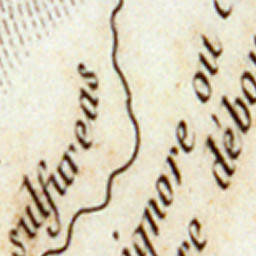 sulfureas
ignore ou
re débou